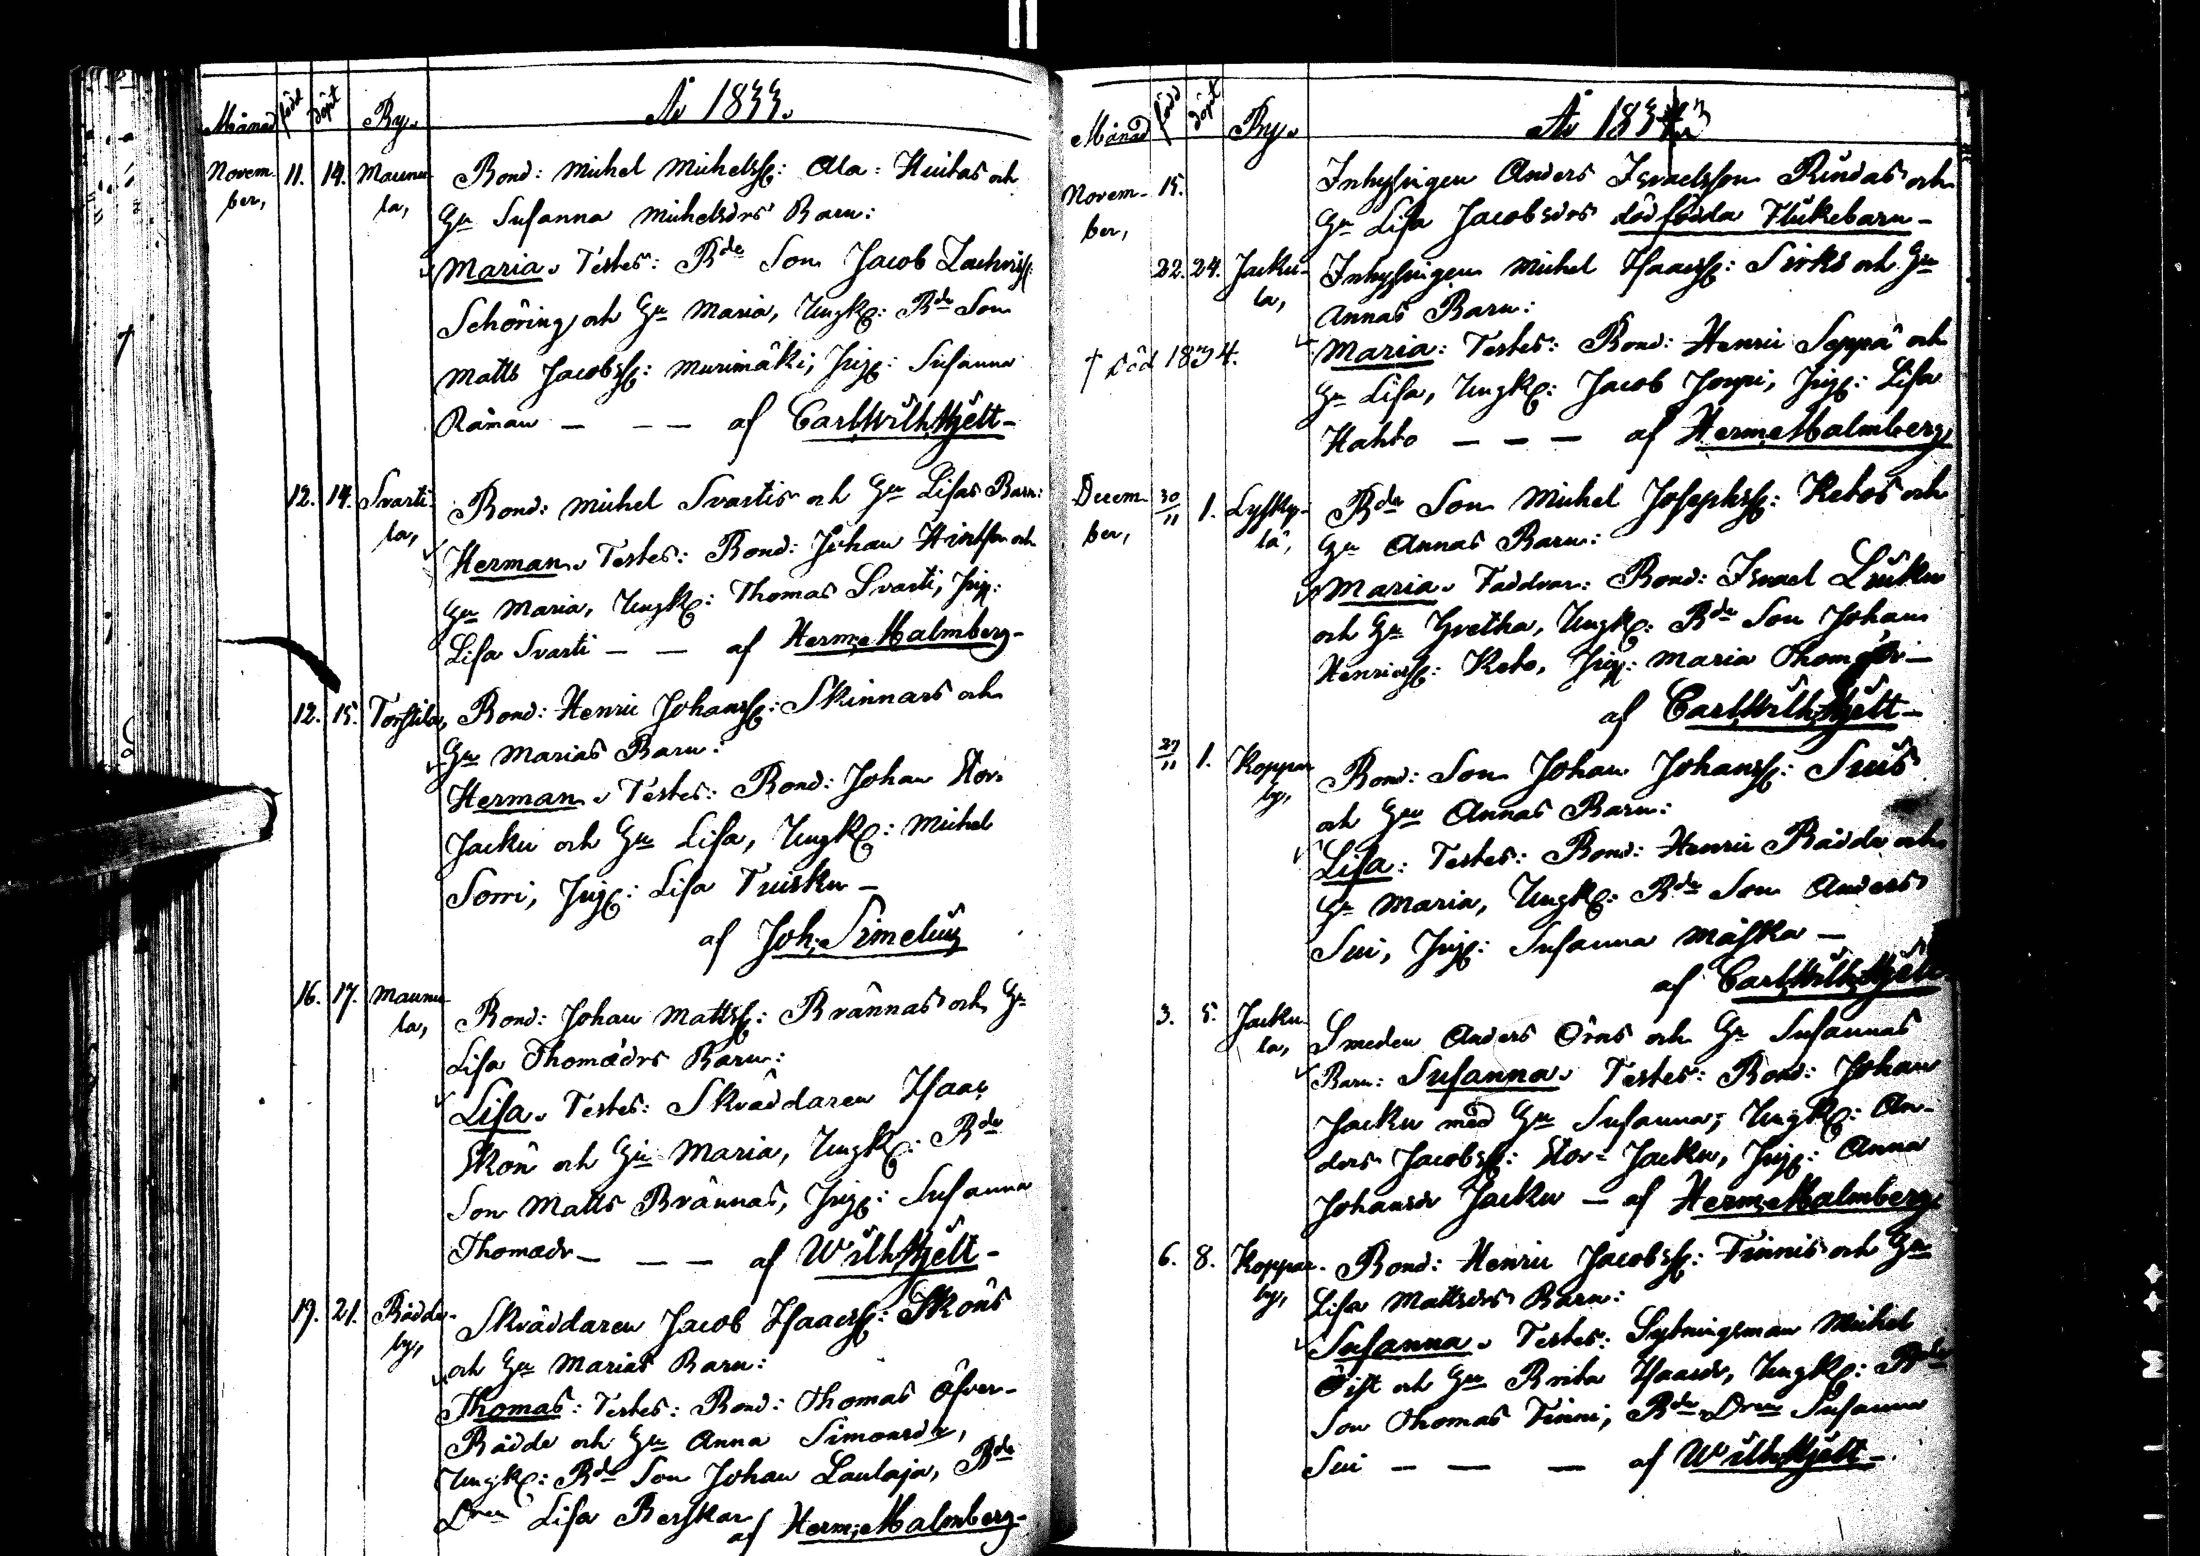 Månad född döpt By. År 1833.
Novem- 11. 14. Maunu- Bond: Michel Michelss: Ala: Huitas och
ber, la, Hu Susanna Michelsdrs Barn:
Maria. Testes: Bde Son Jacob Zachriss:
Schöring och Hu Maria, Ungk: Bde Son
Matts Jacobss: Murimäki, Pig: Susanna
— — — af Carl Wilh Hjelt —
12. 14. Svarti- Bond: Michel Svartis och Hu Lisas Barn:
la, Herman. Testes: Bond: Johan Hintsa och
Hu Maria, Ungk: Thomas Svarti, Pig:
Lisa Svarti — — af Herm: Malmberg —
12. 15. Torstila, Bond: Henric Johanss: Skinnars och
Hu Marias Barn:
Herman. Testes: Bond: Johan Stor-
Jacku och Hu Lisa, Ungk: Michel
Sorri, Pig: Lisa Truisku —
af Joh: Simelius
16. 17. Maunu- Bond: Johan Mattss: Brännas och Hu
la, Lisa Thomædrs Barn:
Lisa. Testes: Skräddaren Isaac
Skön och Hu Maria, Ungk: Bde
Son Matts Brännas, Pig: Susanna
Thomædr — — — af Wilh Hjelt —
19. 21. Rådde- Skräddaren Jacob Isaacss: Sköns
by, och Hu Marias Barn:
Thomas: Testes: Bond: Thomas Öfver-
Rådde och Hu Anna Simonsdr,
Ungk: Bde Son Johan Laulaja, Bde
Dren Lisa Berskar af Herm: Malmberg —
Månad född döpt By. År 1833
Novem- 15. Inhysingen Anders Israelsson Rindas och
ber, Hu Lisa Jacobsdrs dödfödda Flickebarn —
22. 24. Jacku- Inhysingen Michel Isaacss: Sirks och Hu
la, Annas Barn:
† Död 1834. Maria: Testes: Bond: Henric Seppä och
Hu Lisa, Ungk: Jacob Jouppi, Pig: Lisa
Hahto — — — af Herm: Malmberg
Decem- 30/11 1. Lyssky- Bde Son Michel Josephss: Ketos och
ber, lä, Hu Annas Barn:
Maria. Faddrar: Bond: Israel Luuku
och Hu Gretha, Ungk: Bde Son Johan
Henricss: Keto, Pig: Maria Thomædr —
af Carl Wilh Hjelt —
27/11 1. Koppar- Bond: Son Johan Johanss: Suis
by, och Hu Annas Barn:
Lisa: Testes: Bond: Henric Rådde och
Hu Maria, Ungk: Bde Son Anders
Sui, Pig: Susanna Mäska —
af Carl Wilh Hjelt
3. 5. Jacku- Smeden Anders Öras och Hu Susannas
la, Barn: Susanna. Testes: Bond: Johan
Jacku med Hu Susanna, Ungk: An-
ders Jacobss: Stor-Jacku, Pig: Anna
Johansdr Jacku — af Herm: Malmberg
6. 8. Koppar- Bond: Henric Jacobss: Finnis och Hu
by, Lisa Mattsdrs Barn:
Susanna. Testes: Sytningsman Michel
Öist och Hu Brita Isaacsdr, Ungk: Bde
Son Thomas Finni, Bde Dren Susanna
Sui — — — af Wilh Hjelt —